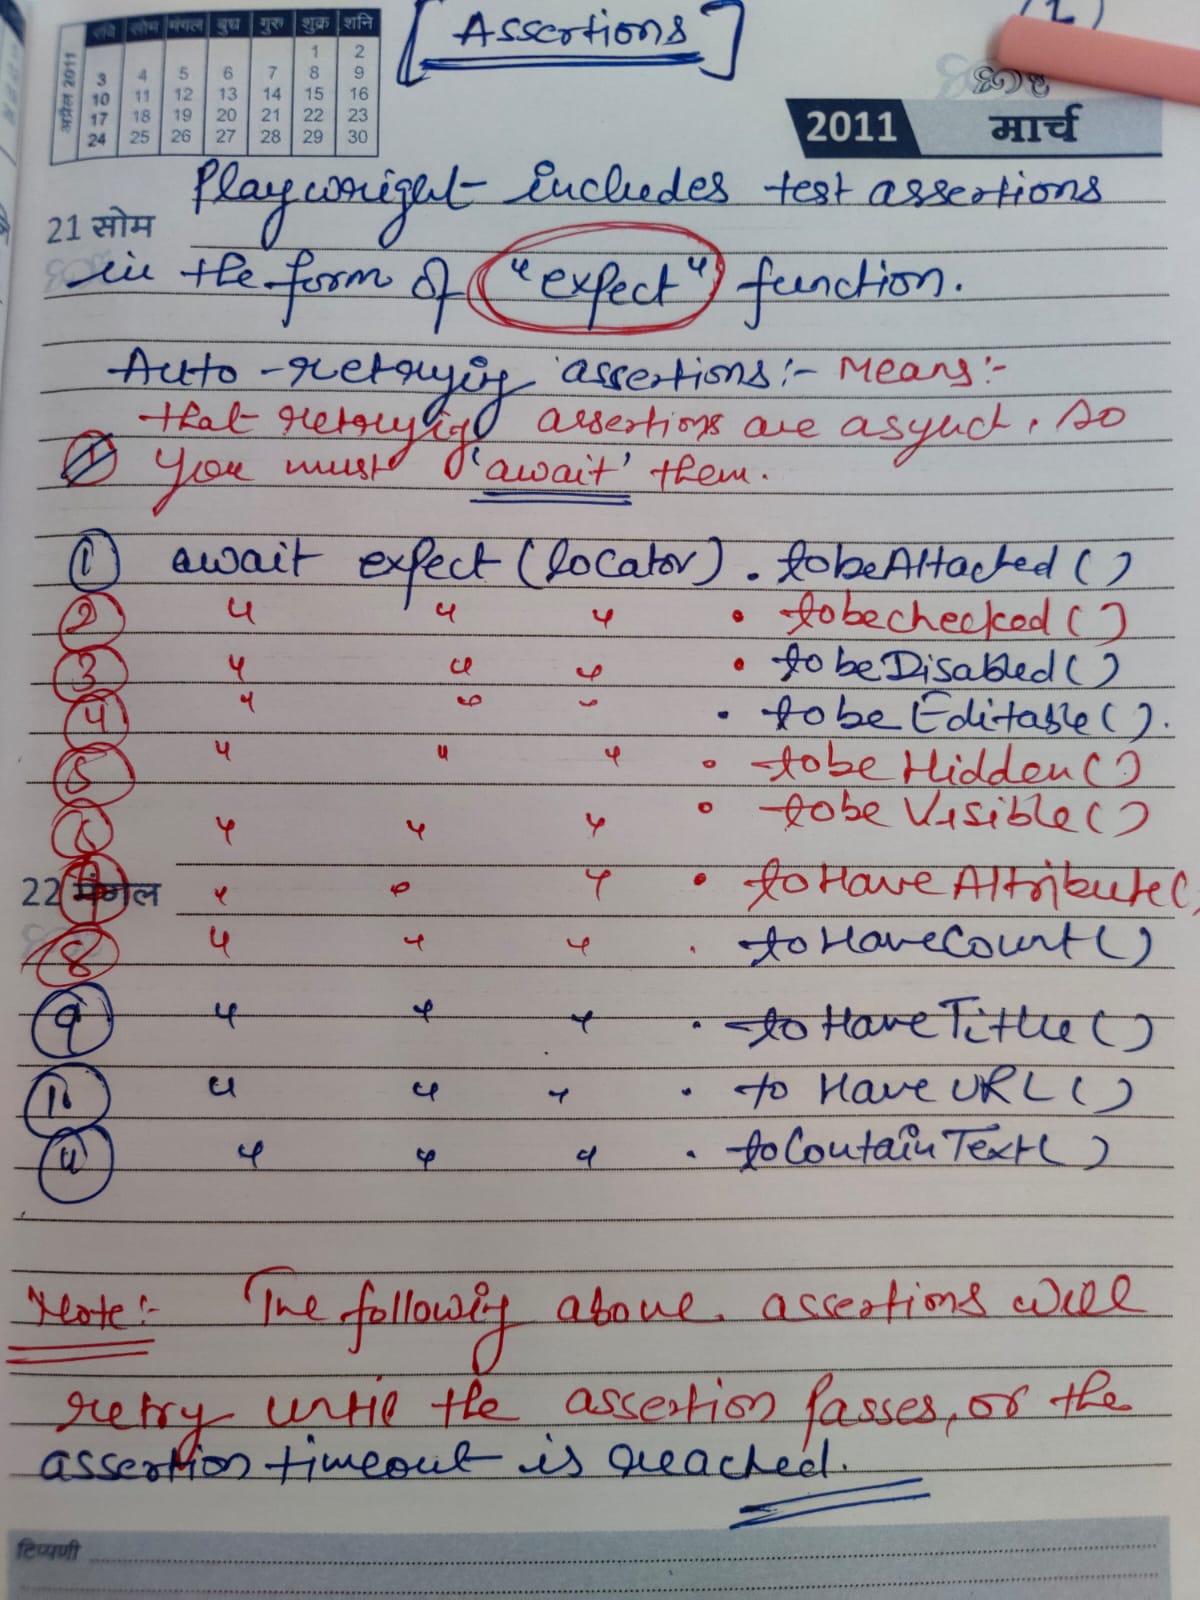 [Assertions]
अप्रैल 2011
रवि सोम मंगल बुध गुरु शुक्र शनि
1 2
3 4 5 6 7 8 9
10 11 12 13 14 15 16
17 18 19 20 21 22 23
24 25 26 27 28 29 30
2011 मार्च
Playwright includes test assertions
21 सोम
in the form of "expect" function.
Auto-retrying assertions:- Means:-
that retrying assertions are asynch, so
you must 'await' them.
① await expect (locator) . tobeAttached ()
② " " " . tobechecked ()
③ " " " . to beDisabled ()
④ " " " . to be Editable ().
⑤ " " " . tobe Hidden ()
⑥ " " " . tobe Visible ()
22 मंगल
⑦ " " " . toHaveAttribute(,
⑧ " " " . toHaveCount ()
⑨ " " " . to HaveTitle ()
⑩ " " " . to Have URL ()
⑪ " " " . toContainText ()
Note:- The following above assertions will
retry until the assertion passes, or the
assertion timeout is reached.
टिप्पणी